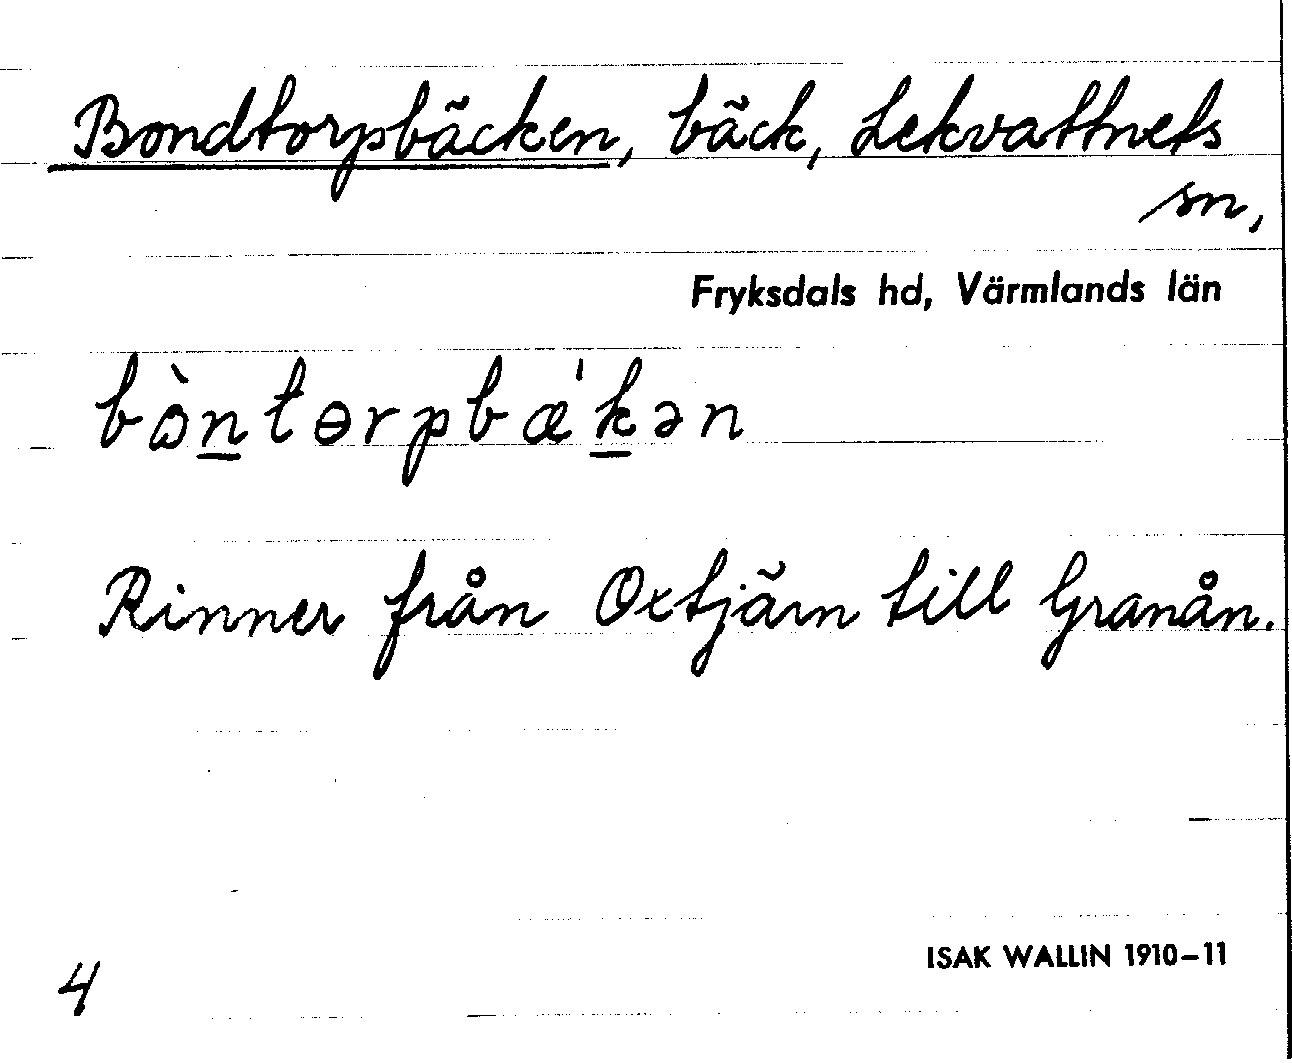 Bondtorpbäcken, bäck, Lekvattnets
sn,
Fryksdals hd, Värmlands län
bò̱ntɵrpbæ'ḵən
Rinner från Oxtjärn till Granån.
ISAK WALLIN 1910–11
4